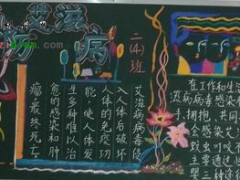 艾滋
病
二(4)班
艾滋病病毒侵
入人体后破坏
人体的免疫功
能，使人体发
生多种难以治
愈的感染和肿
瘤，最终死亡
在工作和生活
滋病病毒感
拥抱、共同
会感染艾
蚊虫叮咬不
主要通过
婴三种途